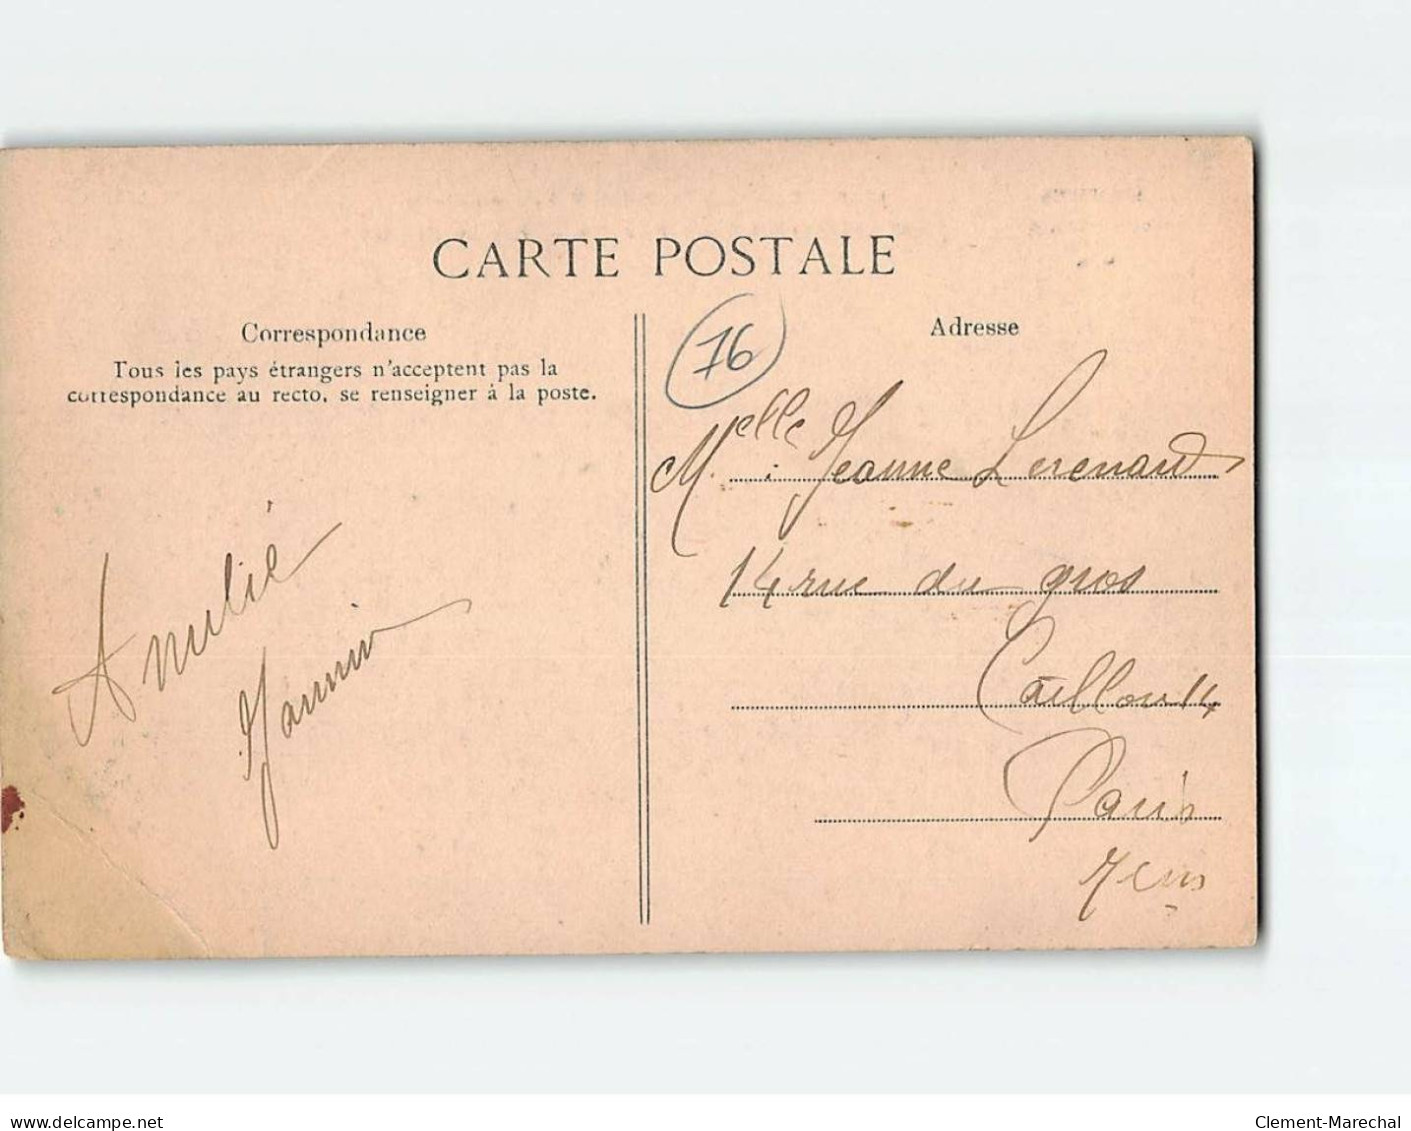 CARTE POSTALE
Correspondance
Tous les pays étrangers n'acceptent pas la
correspondance au recto, se renseigner à la poste.
76
Adresse
Melle Jeanne Lerenard
14 rue du gros
Caillou 14
Paris
7em
Amitié
delcampe.net
Clement-Marechal